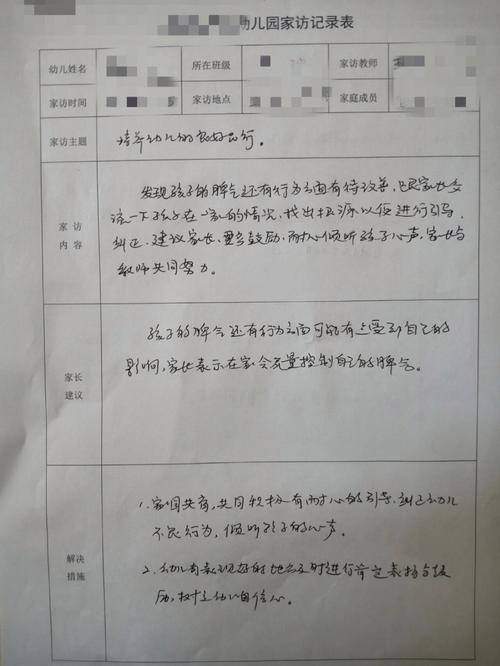 幼儿园家访记录表
幼儿姓名 所在班级 家访教师
家访时间 家访地点 家庭成员
家访主题 培养幼儿的良好品行。
家访
内容
发现孩子的脾气还有行为方面有待改善,与家长交
流一下孩子在家的情况,找出根源以便进行引导
纠正,建议家长,要多鼓励,耐心倾听孩子心声,家长与
教师共同努力。
家长
建议
孩子的脾气还有行为方面可能有点受到自己的
影响,家长表示在家会尽量控制自己的脾气。
解决
措施
1.家园共育,共同积极有耐心的引导、纠正幼儿
不良行为,倾听孩子的心声。
2.幼儿有表现好的地方及时进行肯定表扬与鼓
励,树立幼儿自信心。